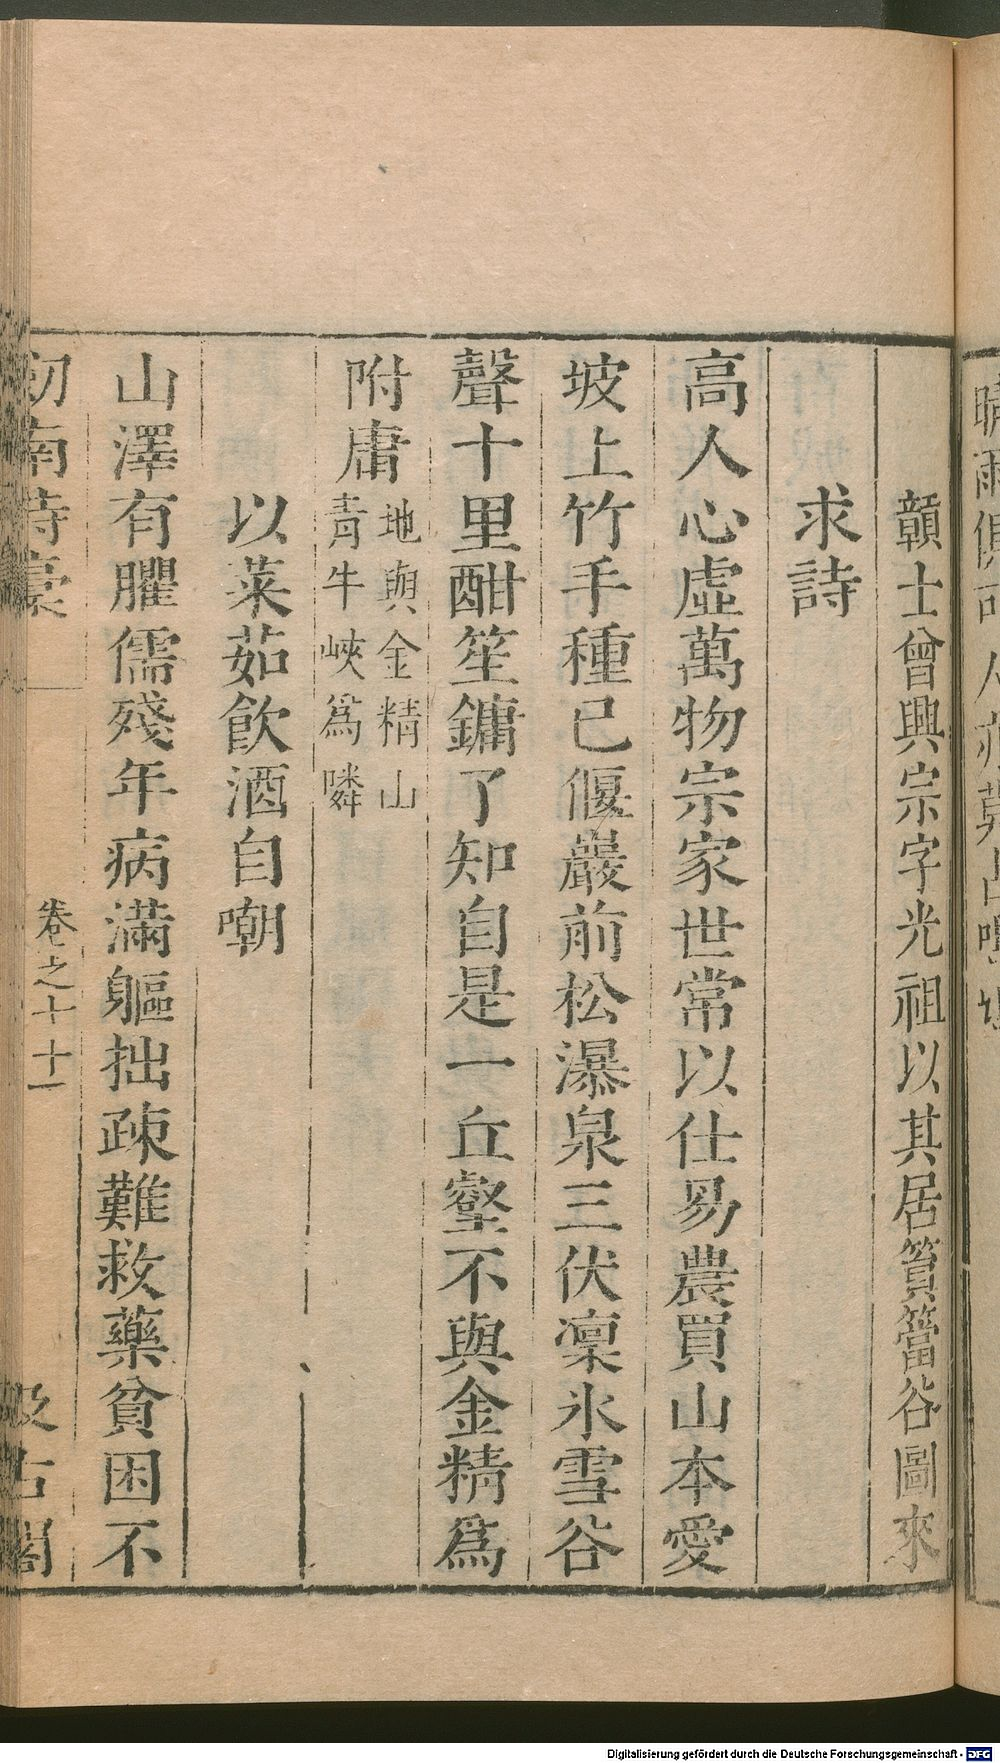 贛士曾興宗字光祖以其居篔簹谷圖來
求詩
高人心虛萬物宗家世常以仕易農買山本愛
坡上竹手種已偃巖前松瀑泉三伏凜氷雪谷
聲十里酣笙鏞了知自是一丘壑不與金精爲
附庸地與金精山
青牛峽爲隣
以菜茹飲酒自嘲
山澤有臞儒殘年病滿軀拙疎難救藥貧困不
劍南詩稾
卷七之十 十一
汲古閣
Digitalisierung gefördert durch die Deutsche Forschungsgemeinschaft - DFG